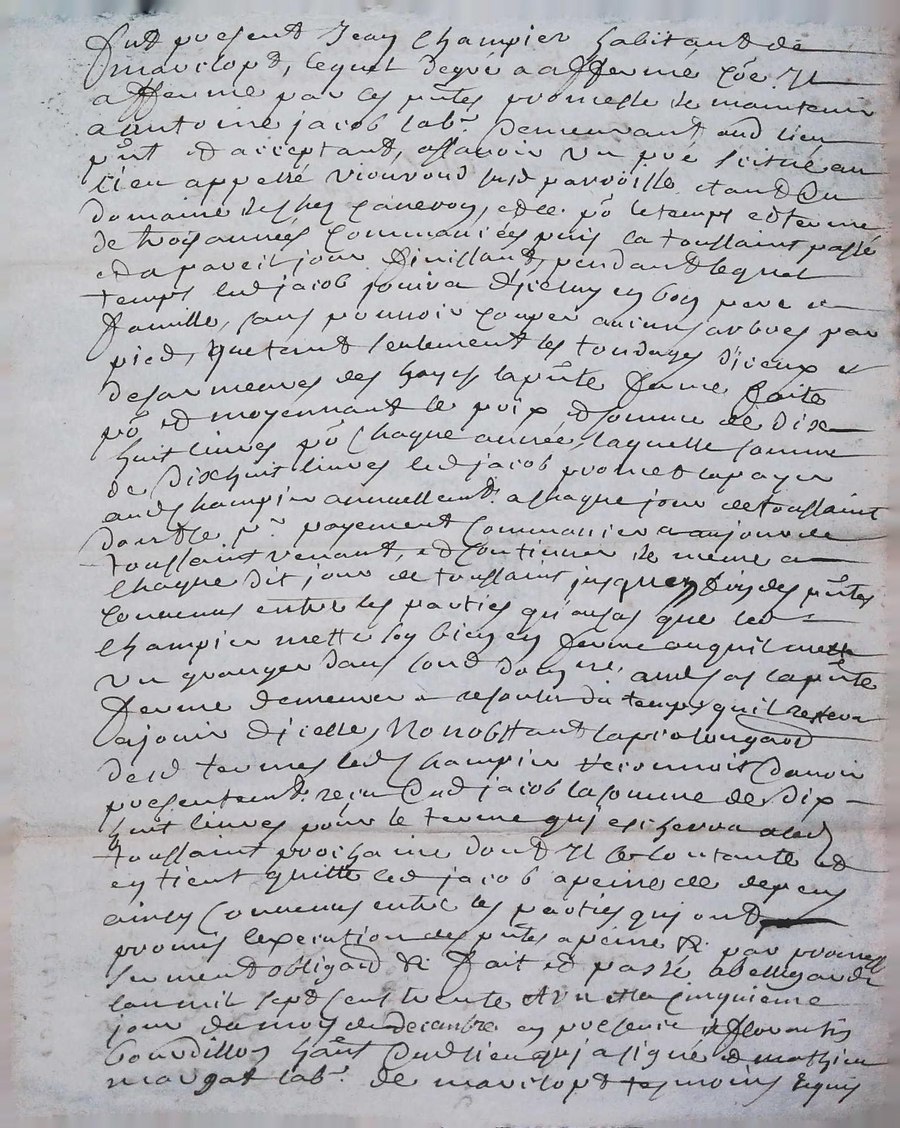 fut present Jean Champier habitant de
marelopt, lequel degré a afferme et
afferme par ces pntes promesse de maintenir
a antoine jacob lab.r Demeurant aud lieu
pnt et acceptant, assavoir un pré scitué au
lieu appellé susd parroisse etant du
domaine de temps et terme
de trois années Commancées puis la toussaint passé
et a pareil jour finissant, pendant lequel
temps led jacob jouira d'jceluy en bon pere de
famille, sans pouvoir couper aucuns arbres par
pied, que tant seulement les tondages d'iceux et
des armeures des hayes la pnte ferme faite
po et moyennant le prix et somme de Dix
huit livres po chaque année, laquelle somme
de Dixhuit livres led jacob promet la payer
aud Champier annuellemt. a chaque jour de toussaint
dont le p.r payement Commancera au jour de
toussaint venant, et continuer de meme a
Chaque dit jour de toussaint jusquen fin des pntes
convenus entre les parties qu'au cas que led
Champier mette son bien en ferme ou quil mette
un granger dans son d domne. aud cas la pnte
ferme demeurera resoulue du temps quil restera
a jouir d'jcelle, Nonobstant la prolongaon
desd termes led Champier reconnoit d'avoir
presentemt. recu dud jacob la somme de Dix
huit livres pour le terme qui escherra aud
toussaint prochaine dont Jl se contante et
en tient quitte led jacob a peine de depens
ainsy Convenus entre les parties qui ont
promis l'execution des pntes a peine &. par promes
serment obligaon &. fait et passé
l'an mil sept cent trente et un et le cinquieme
jour du mois de decembre en presence de florentin
bourdillon hant dud lieu qui a signé et mathieu
margat lab.r de marelopt tesmoins requis